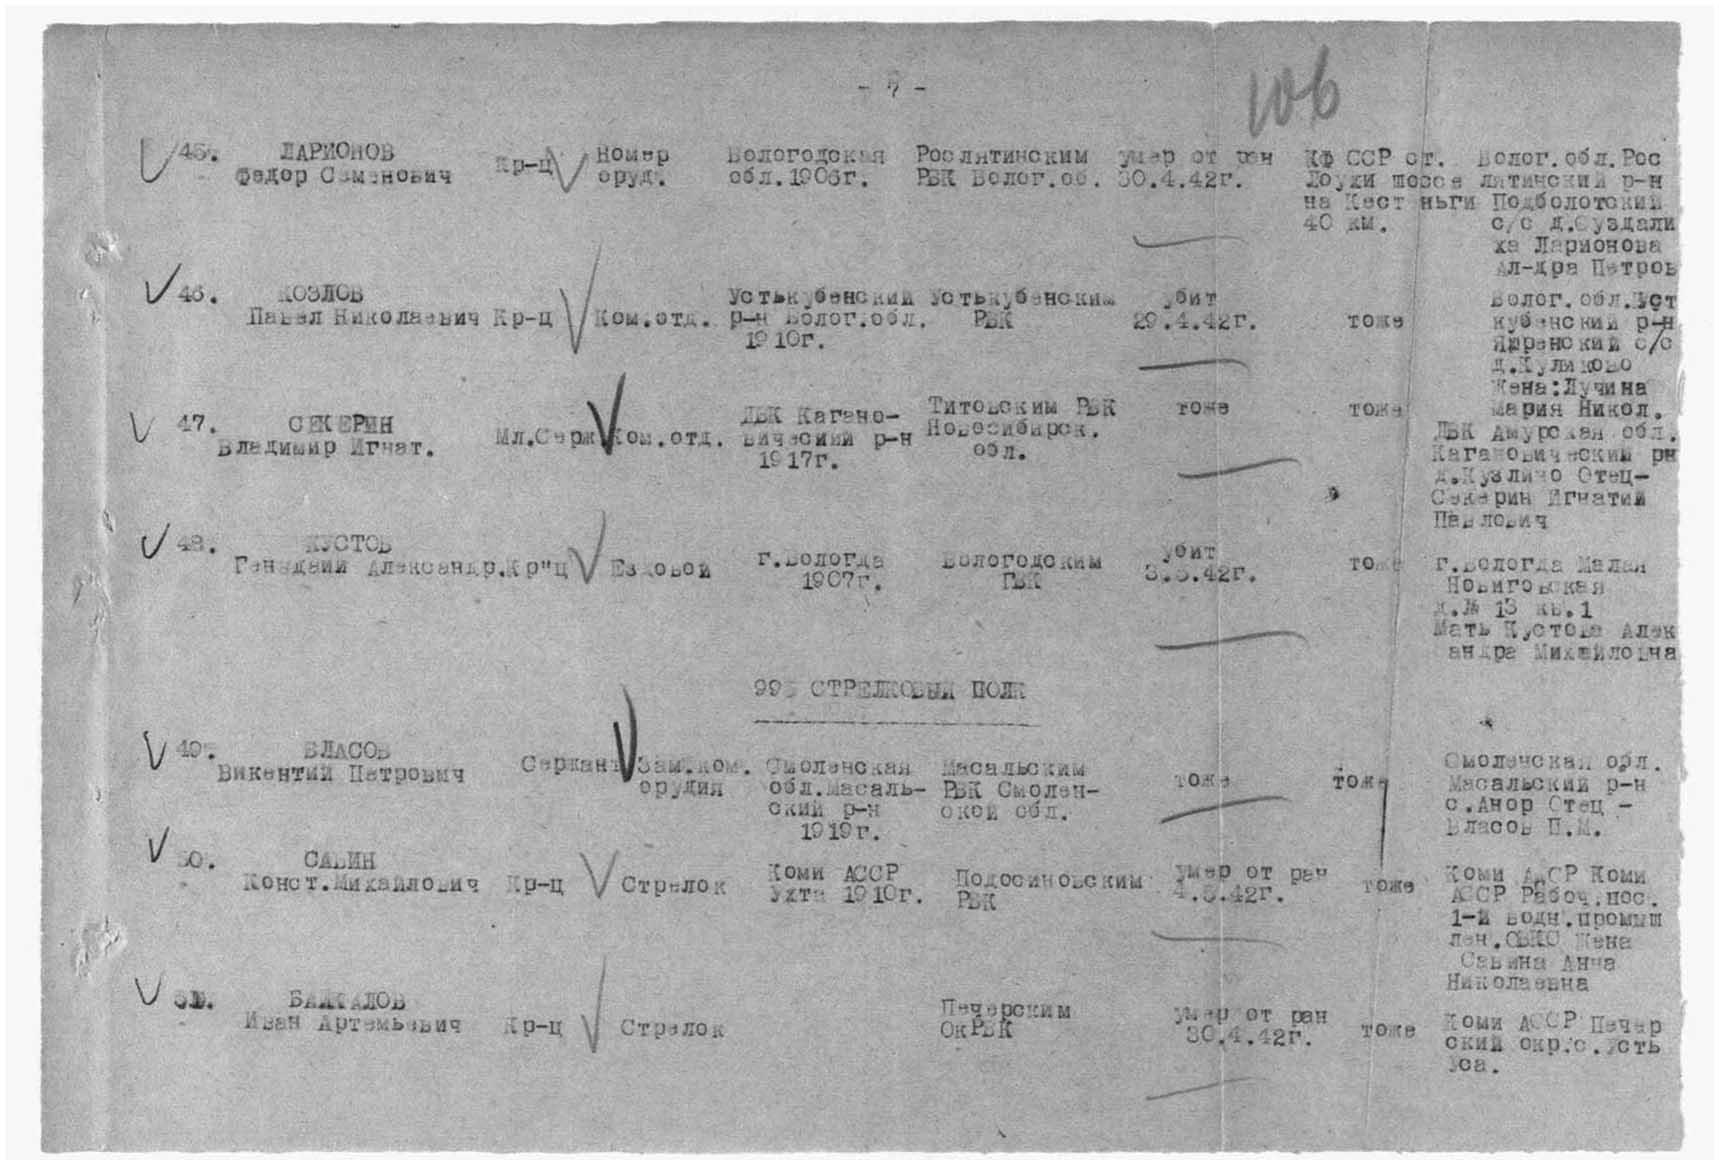 106
45. ЛАРИОНОВ
Федор Семенович
Кр-ц
Номер
оруд.
Вологодская
обл.1906г.
Рослятинским
РВК Волог.об.
умер от ран
30.4.42г.
КФ ССР ст.
Лоухи шоссе
на Кест ньги
40 км.
Волог.обл.Рос
лятинский р-н
Подболотский
с/с д.Суздали
ха Ларионова
Ал-дра Петров
46. КОЗЛОВ
Павел Николаевич
Кр-ц
Ком.отд.
Устькубенский
р-н Волог.обл.
1910г.
Устькубенским
РВК
убит
29.4.42г.
тоже
Волог.обл.Уст
кубенский р-н
с/с
д.Куляково
Жена:Лучина
Мария Никол.
47. СЕКЕРИН
Владимир Игнат.
Мл.Серж
Ком.отд.
ДВК Кагано-
вический р-н
1917г.
Титовским РВК
Новосибирск.
обл.
тоже
тоже
ДВК Амурская обл.
Кагановический рн
д.Кузлино Отец-
Секерин Игнатий
Павлович
48. КУСТОВ
Генадий Александр.
Кр"ц
Ездовой
г.Вологда
1907г.
Вологодским
ГВК
убит
3.5.42г.
тоже
г.Вологда Малая
Новиговская
д.№ 13 кв.1
Мать Кустова Алек
андра Михайловна
СТРЕЛКОВЫЙ ПОЛК
49. ВЛАСОВ
Викентий Петрович
Сержант
Зам.ком.
орудия
Смоленская
обл.Масаль-
ский р-н
1919г.
Масальским
РВК Смолен-
ской обл.
тоже
тоже
Смоленская обл.
Масальский р-н
с.Анор Отец -
Власов П.М.
50. САВИН
Конст.Михайлович
Кр-ц
Стрелок
Коми АССР
Ухта 1910г.
Подосиновским
РВК
умер от ран
4.5.42г.
тоже
Коми АССР Коми
АССР Рабоч.пос.
1-й водн.промыш
лен. Жена
Савина Анна
Николаевна
51. БАЙКАЛОВ
Иван Артемьевич
Кр-ц
Стрелок
Печерским
ОкРВК
умер от ран
30.4.42г.
тоже
Коми АССР Печер
ский окр.с.Усть
Уса.